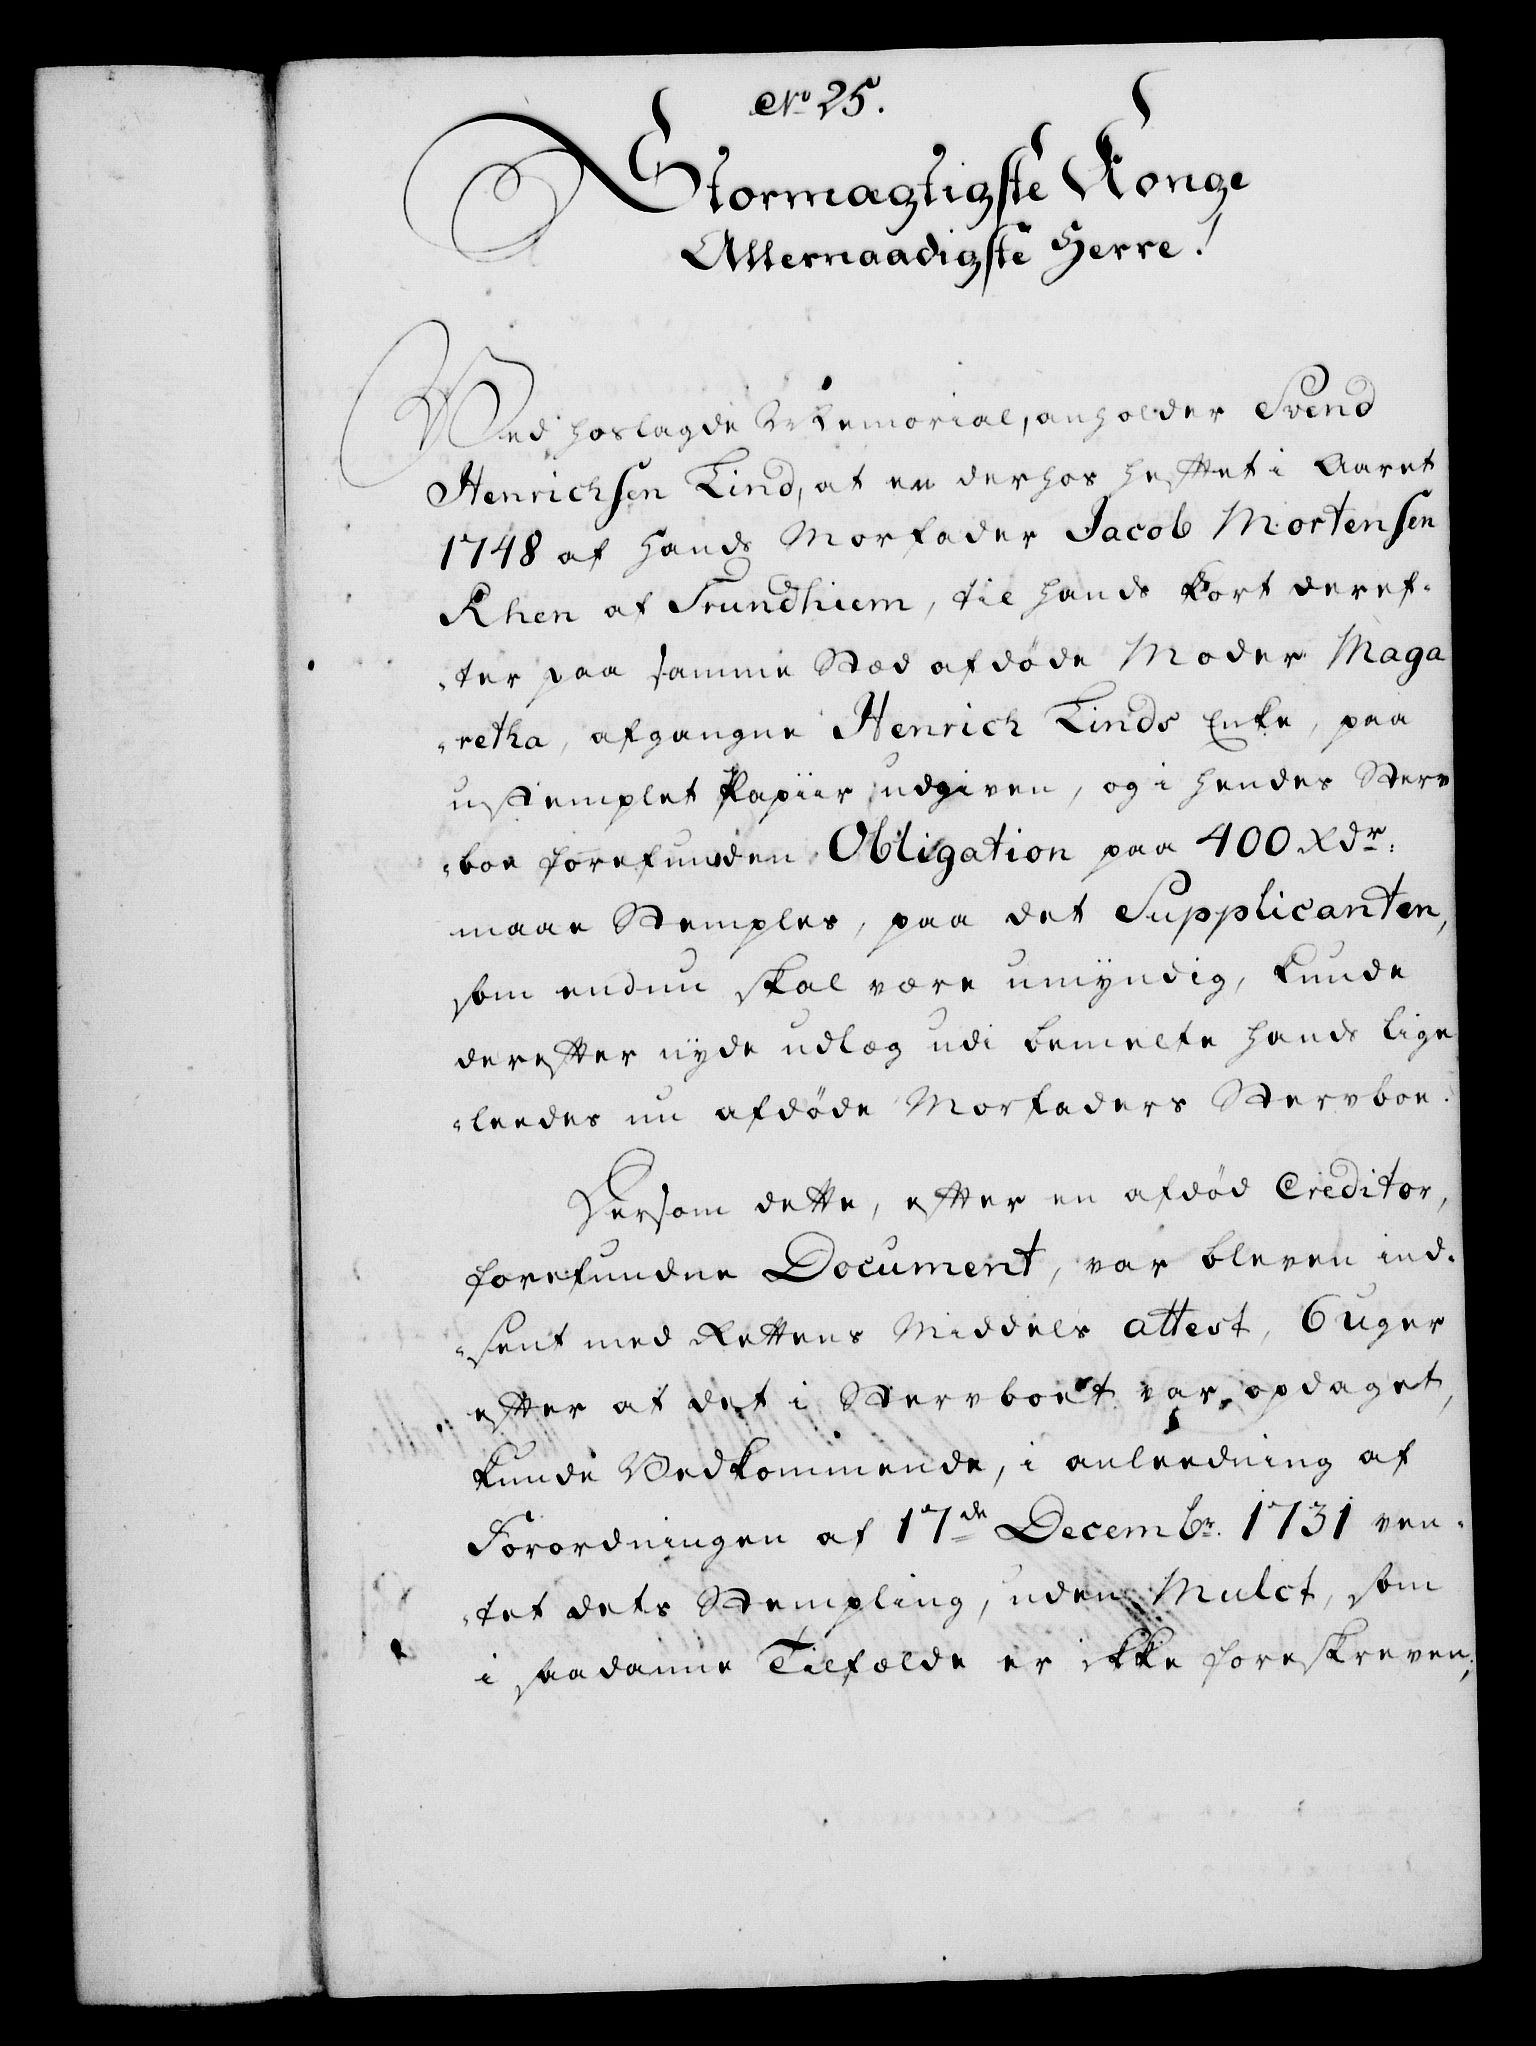 No 25.
Stormægtigste Konge
Allernaadigste Herre!
Ved hoslagde Memorial, anholder Svend
Henrichsen Lind, at en derhos heftet i Aaret
1748 af hands Morfader Jacob Mortensen
Rhen af Trundhiem, til hands kort deref-
-ter paa samme Stæd afdøde Moder Maga
-retha, afgangne Henrich Linds Enke, paa
ustemplet Papiir udgiven, og i hendes Sterv
-boe forefunden Obligation paa 400 Rdr.
maae Stemples, paa det Supplicanten,
som endnu skal være umyndig, kunde
derefter nyde udlæg udi bemelte hands lige
-leedes nu afdøde Morfaders Stervboe.
Dersom dette, efter en afdød Creditor,
forefundne Document, var bleven ind-
-sent med Rettens Middels attest, 6 uger
efter at det i Stervboet var opdaget,
kunde Vedkommende, i anleedning af
Forordningen af 17de Decembr. 1731 ven-
-tet dets Stempling, uden Mulct, som
i saadanne Tilfælde er ikke foreskreven;